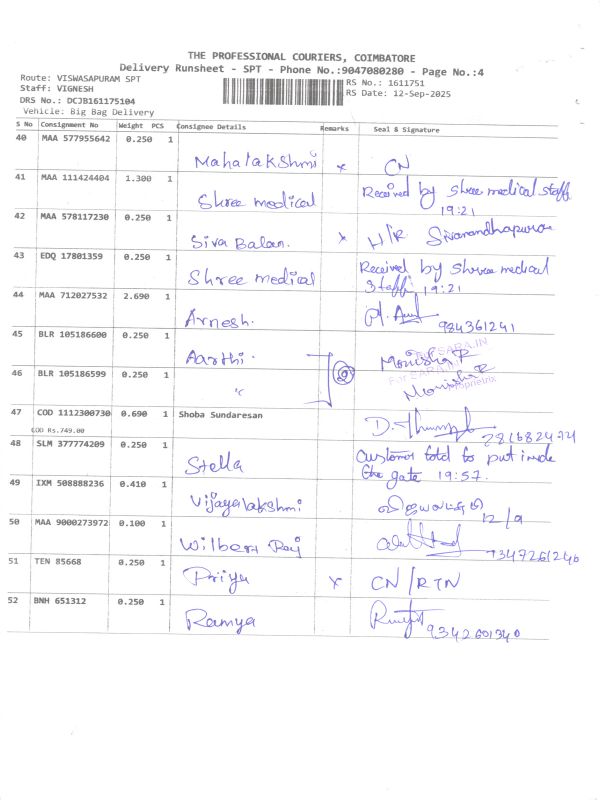 THE PROFESSIONAL COURIERS, COIMBATORE
Delivery Runsheet - SPT - Phone No.:9047080280 - Page No.:4
Route: VISWASAPURAM SPT
Staff: VIGNESH
DRS No.: DCJB161175104
Vehicle: Big Bag Delivery
RS No.: 1611751
RS Date: 12-Sep-2025
S No Consignment No Weight PCS Consignee Details Remarks Seal & Signature
40 MAA 577955642 0.250 1
Mahalakshmi x CN
41 MAA 111424404 1.300 1
Shree medical Received by Shree medical staff
19:21
42 MAA 578117230 0.250 1
Siva Balan. x H/R Sivanandhapura
43 EDQ 17801359 0.250 1
Shree medical Received by Shree medical
staff 19:21
44 MAA 712027532 2.690 1
Arnesh. 984361241
45 BLR 105186600 0.250 1
Aarthi. Monisha R
46 BLR 105186599 0.250 1
" 2 Monisha R
Proprietrix
47 COD 1112300730 0.690 1 Shoba Sundaresan
COD Rs.749.00
48 SLM 377774209 0.250 1
Stella Customer told to put inside
the gate 19:57.
49 IXM 508888236 0.410 1
Vijayalakshmi விஜயலட்சுமி
12/9
50 MAA 9000273972 0.100 1
Wilbert Raj 7347261240
51 TEN 85668 0.250 1
Priya x CN/RTN
52 BNH 651312 0.250 1
Ramya 9342601340